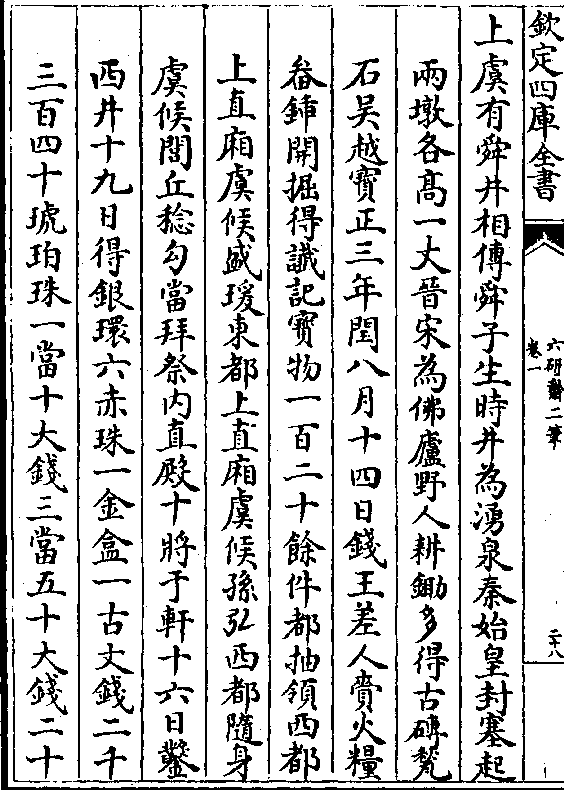 欽定四庫全書
六研齋二筆
卷一
二十八
上虞有舜井相傳舜子生時井為湧泉秦始皇封塞起
兩墩各高一丈晉宋為佛廬野人耕鋤多得古磚甃
石吳越寶正三年閏八月十四日錢王差人賫火糧
畚鍤開掘得讖記寶物一百二十餘件都抽領西都
上直廂虞候盛瑗東都上直廂虞候孫弘西都隨身
虞候閭丘稔勾當拜祭内直殿十將于軒十六日鑿
西井十九日得銀環六赤珠一金盒一古文錢二千
三百四十琥珀珠一當十大錢三當五十大錢二十